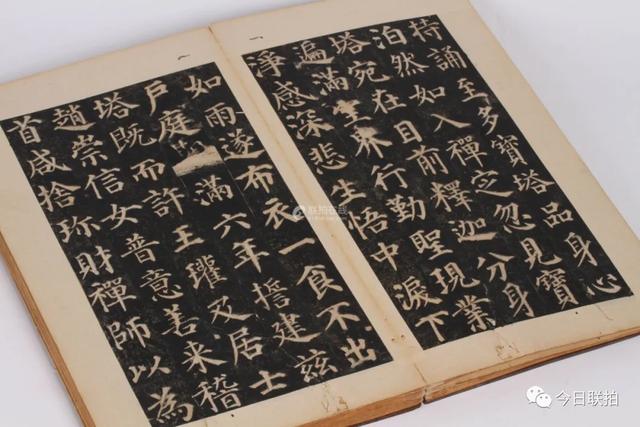 持誦至多寶塔品身心
泊然如入禪定忽見寶
塔宛在目前釋迦分身
遍滿空界行勤聖現業
淨感深悲生悟中淚下
如雨遂布衣一食不出
戶庭滿六年誓建茲
塔既而許王瓘及居士
趙崇信女普意善来稽
首咸捨珎財禪師以為
联拍在线
今日联拍